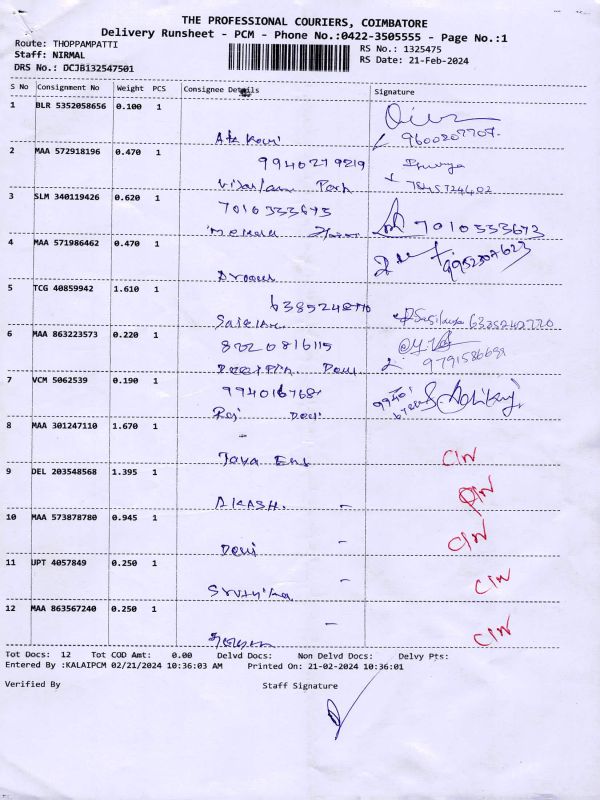 THE PROFESSIONAL COURIERS, COIMBATORE
Delivery Runsheet - PCM - Phone No.:0422-3505555 - Page No.:1
Route: THOPPAMPATTI RS No.: 1325475
Staff: NIRMAL RS Date: 21-Feb-2024
DRS No.: DCJB132547501
S No Consignment No Weight PCS Consignee Details Signature
1 BLR 5352058656 0.100 1
9600207707-
2 MAA 572918196 0.470 1 9940279219
Park 7845724602
3 SLM 340119426 0.620 1 7010333675 7010333673
4 MAA 571986462 0.470 1 9952307623
5 TCG 40859942 1.610 1 6385248770
Sasikala 6385248770
6 MAA 863223573 0.220 1 8220816115
Devi 9791586698
7 VCM 5062539 0.190 1 9940167681
Raj Devi
8 MAA 301247110 1.670 1 -
Jaya Ent C/N
9 DEL 203548568 1.395 1
AKASH. - C/N
10 MAA 573878780 0.945 1
Devi - C/N
11 UPT 4057849 0.250 1
- C/N
12 MAA 863567240 0.250 1
- C/N
Tot Docs: 12 Tot COD Amt: 0.00 Delvd Docs: Non Delvd Docs: Delvy Pts:
Entered By :KALAIPCM 02/21/2024 10:36:03 AM Printed On: 21-02-2024 10:36:01
Verified By Staff Signature